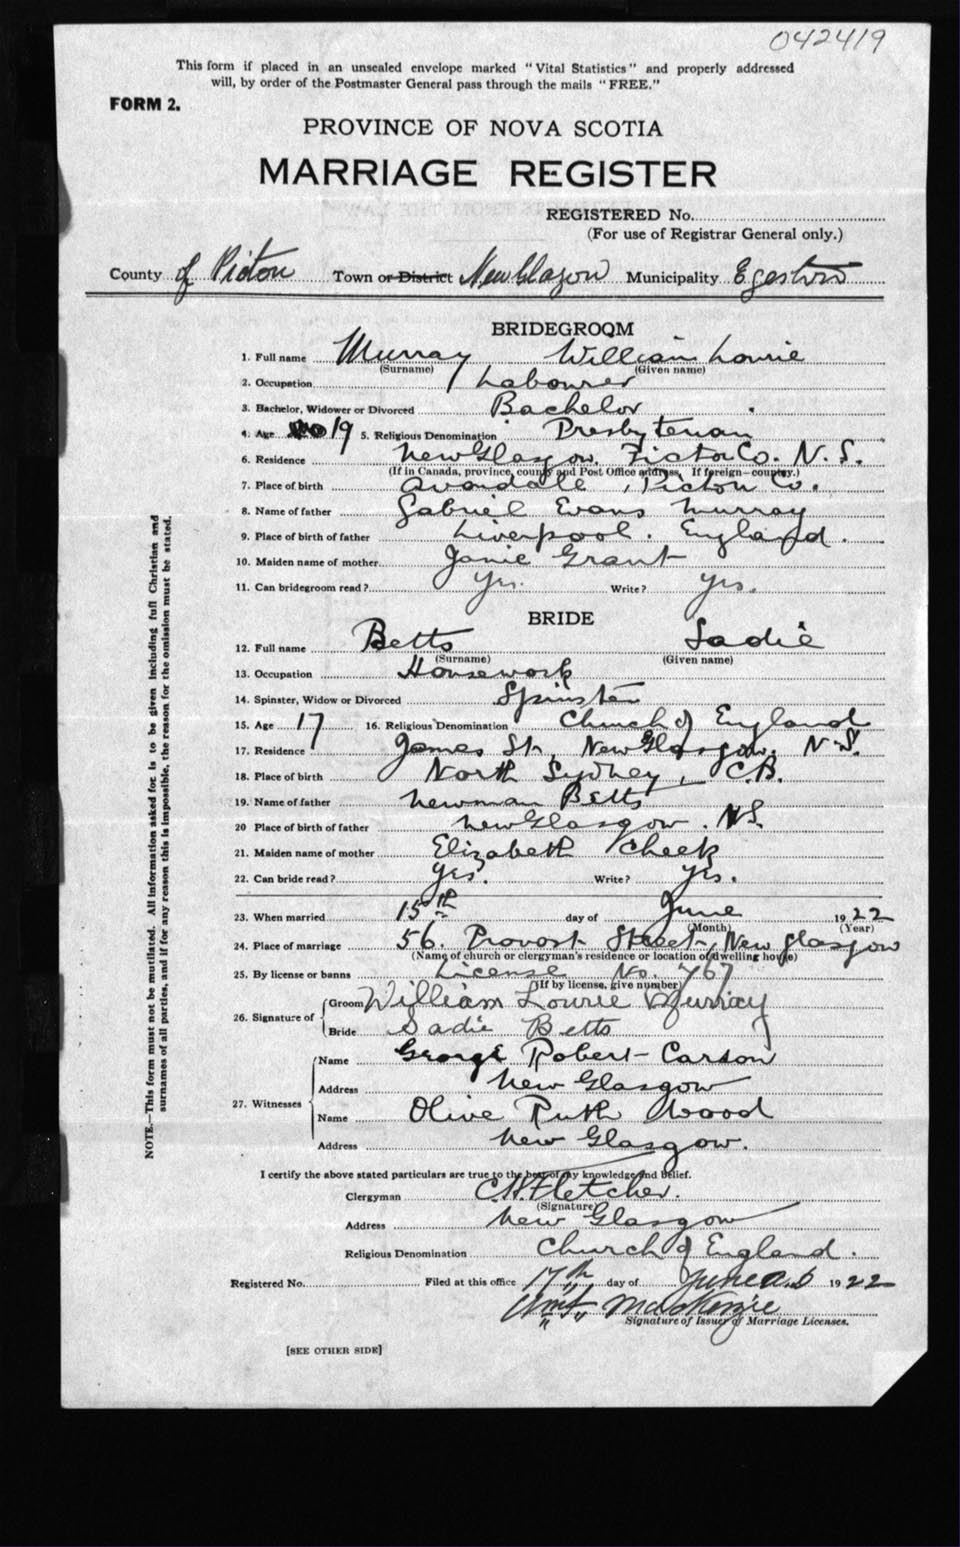 042419
This form if placed in an unsealed envelope marked "Vital Statistics" and properly addressed
will, by order of the Postmaster General pass through the mails "FREE."
FORM 2.
PROVINCE OF NOVA SCOTIA
MARRIAGE REGISTER
REGISTERED No.
(For use of Registrar General only.)
County of Pictou Town or District New Glasgow Municipality Egerton
BRIDEGROOM
1. Full name Murray William Lowrie
(Surname) (Given name)
2. Occupation Labourer
3. Bachelor, Widower or Divorced Bachelor
4. Age 19 5. Religious Denomination Presbyterian
6. Residence New Glasgow, Pictou Co. N.S.
(If in Canada, province, county and Post Office address, If foreign—country.)
7. Place of birth Avondale, Pictou Co.
8. Name of father Gabriel Evans Murray
9. Place of birth of father Liverpool. England.
10. Maiden name of mother Janie Grant
11. Can bridegroom read? Yes. Write? Yes.
BRIDE
12. Full name Betts Sadie
(Surname) (Given name)
13. Occupation Housework
14. Spinster, Widow or Divorced Spinster
15. Age 17 16. Religious Denomination Church of England
17. Residence James St., New Glasgow, N.S.
18. Place of birth North Sydney, C.B.
19. Name of father Newman Betts
20 Place of birth of father New Glasgow. N.S.
21. Maiden name of mother Elizabeth Cheek
22. Can bride read? Yes. Write? Yes.
23. When married 15th day of June 1922
(Month) (Year)
24. Place of marriage 56. Provost Street, New Glasgow
(Name of church or clergyman's residence or location of dwelling house)
25. By license or banns License No. 767
(If by license, give number)
26. Signature of Groom William Lourie Murray
Bride Sadie Betts
27. Witnesses Name George Robert Carson
Address New Glasgow
Name Olive Ruth Wood
Address New Glasgow.
I certify the above stated particulars are true to the best of my knowledge and belief.
Clergyman C.H. Fletcher.
(Signature)
Address New Glasgow
Religious Denomination Church of England.
Registered No. Filed at this office 17th day of June 1922
MacKenzie
Signature of Issuer of Marriage Licenses.
[SEE OTHER SIDE]
NOTE.—This form must not be mutilated. All information asked for is to be given including full Christian and
surnames of all parties, and if for any reason this is impossible, the reason for the omission must be stated.